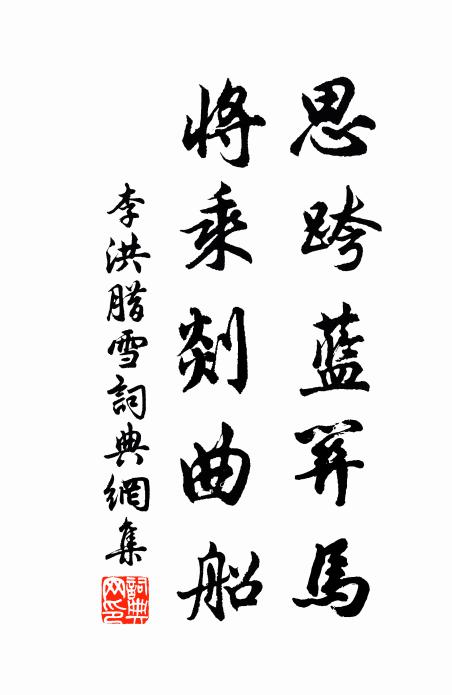 思跨藍關馬
將乘剡曲船
李洪腊雪詞典網集
詞典网印